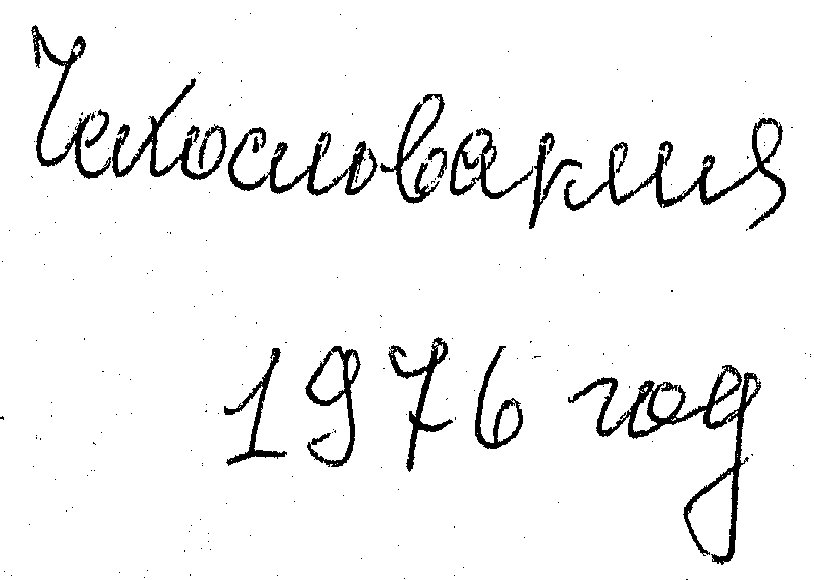 Чехословакия
1976 год